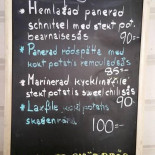 * Hemlagad panerad
schnitzel med stekt pot.
bearnaisesås 90:-
* Panerad rödspätta med
kokt potatis remouladsås
85:-
* Marinerad kycklinfile
stekt potatis sweetchilisås
90:-
* Laxfile kokt potatis
skagenröra
100:-